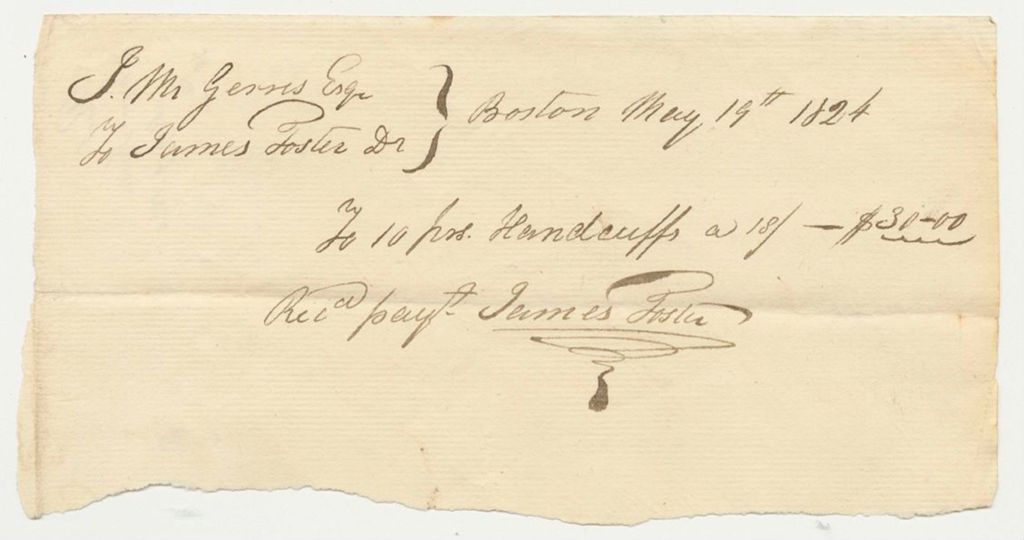 J. Mr Gerris Esqr
To James Foster Dr } Boston May 19th 1824
To 10 prs. Handcuffs a 18/ — $30-00
Recd payt. James Foster